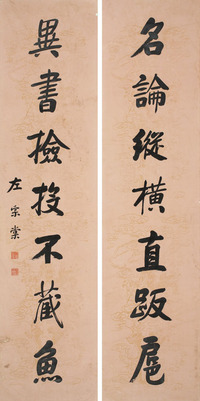 名論縱橫直𨁝扈
異書撿挍不藏魚
左宗棠